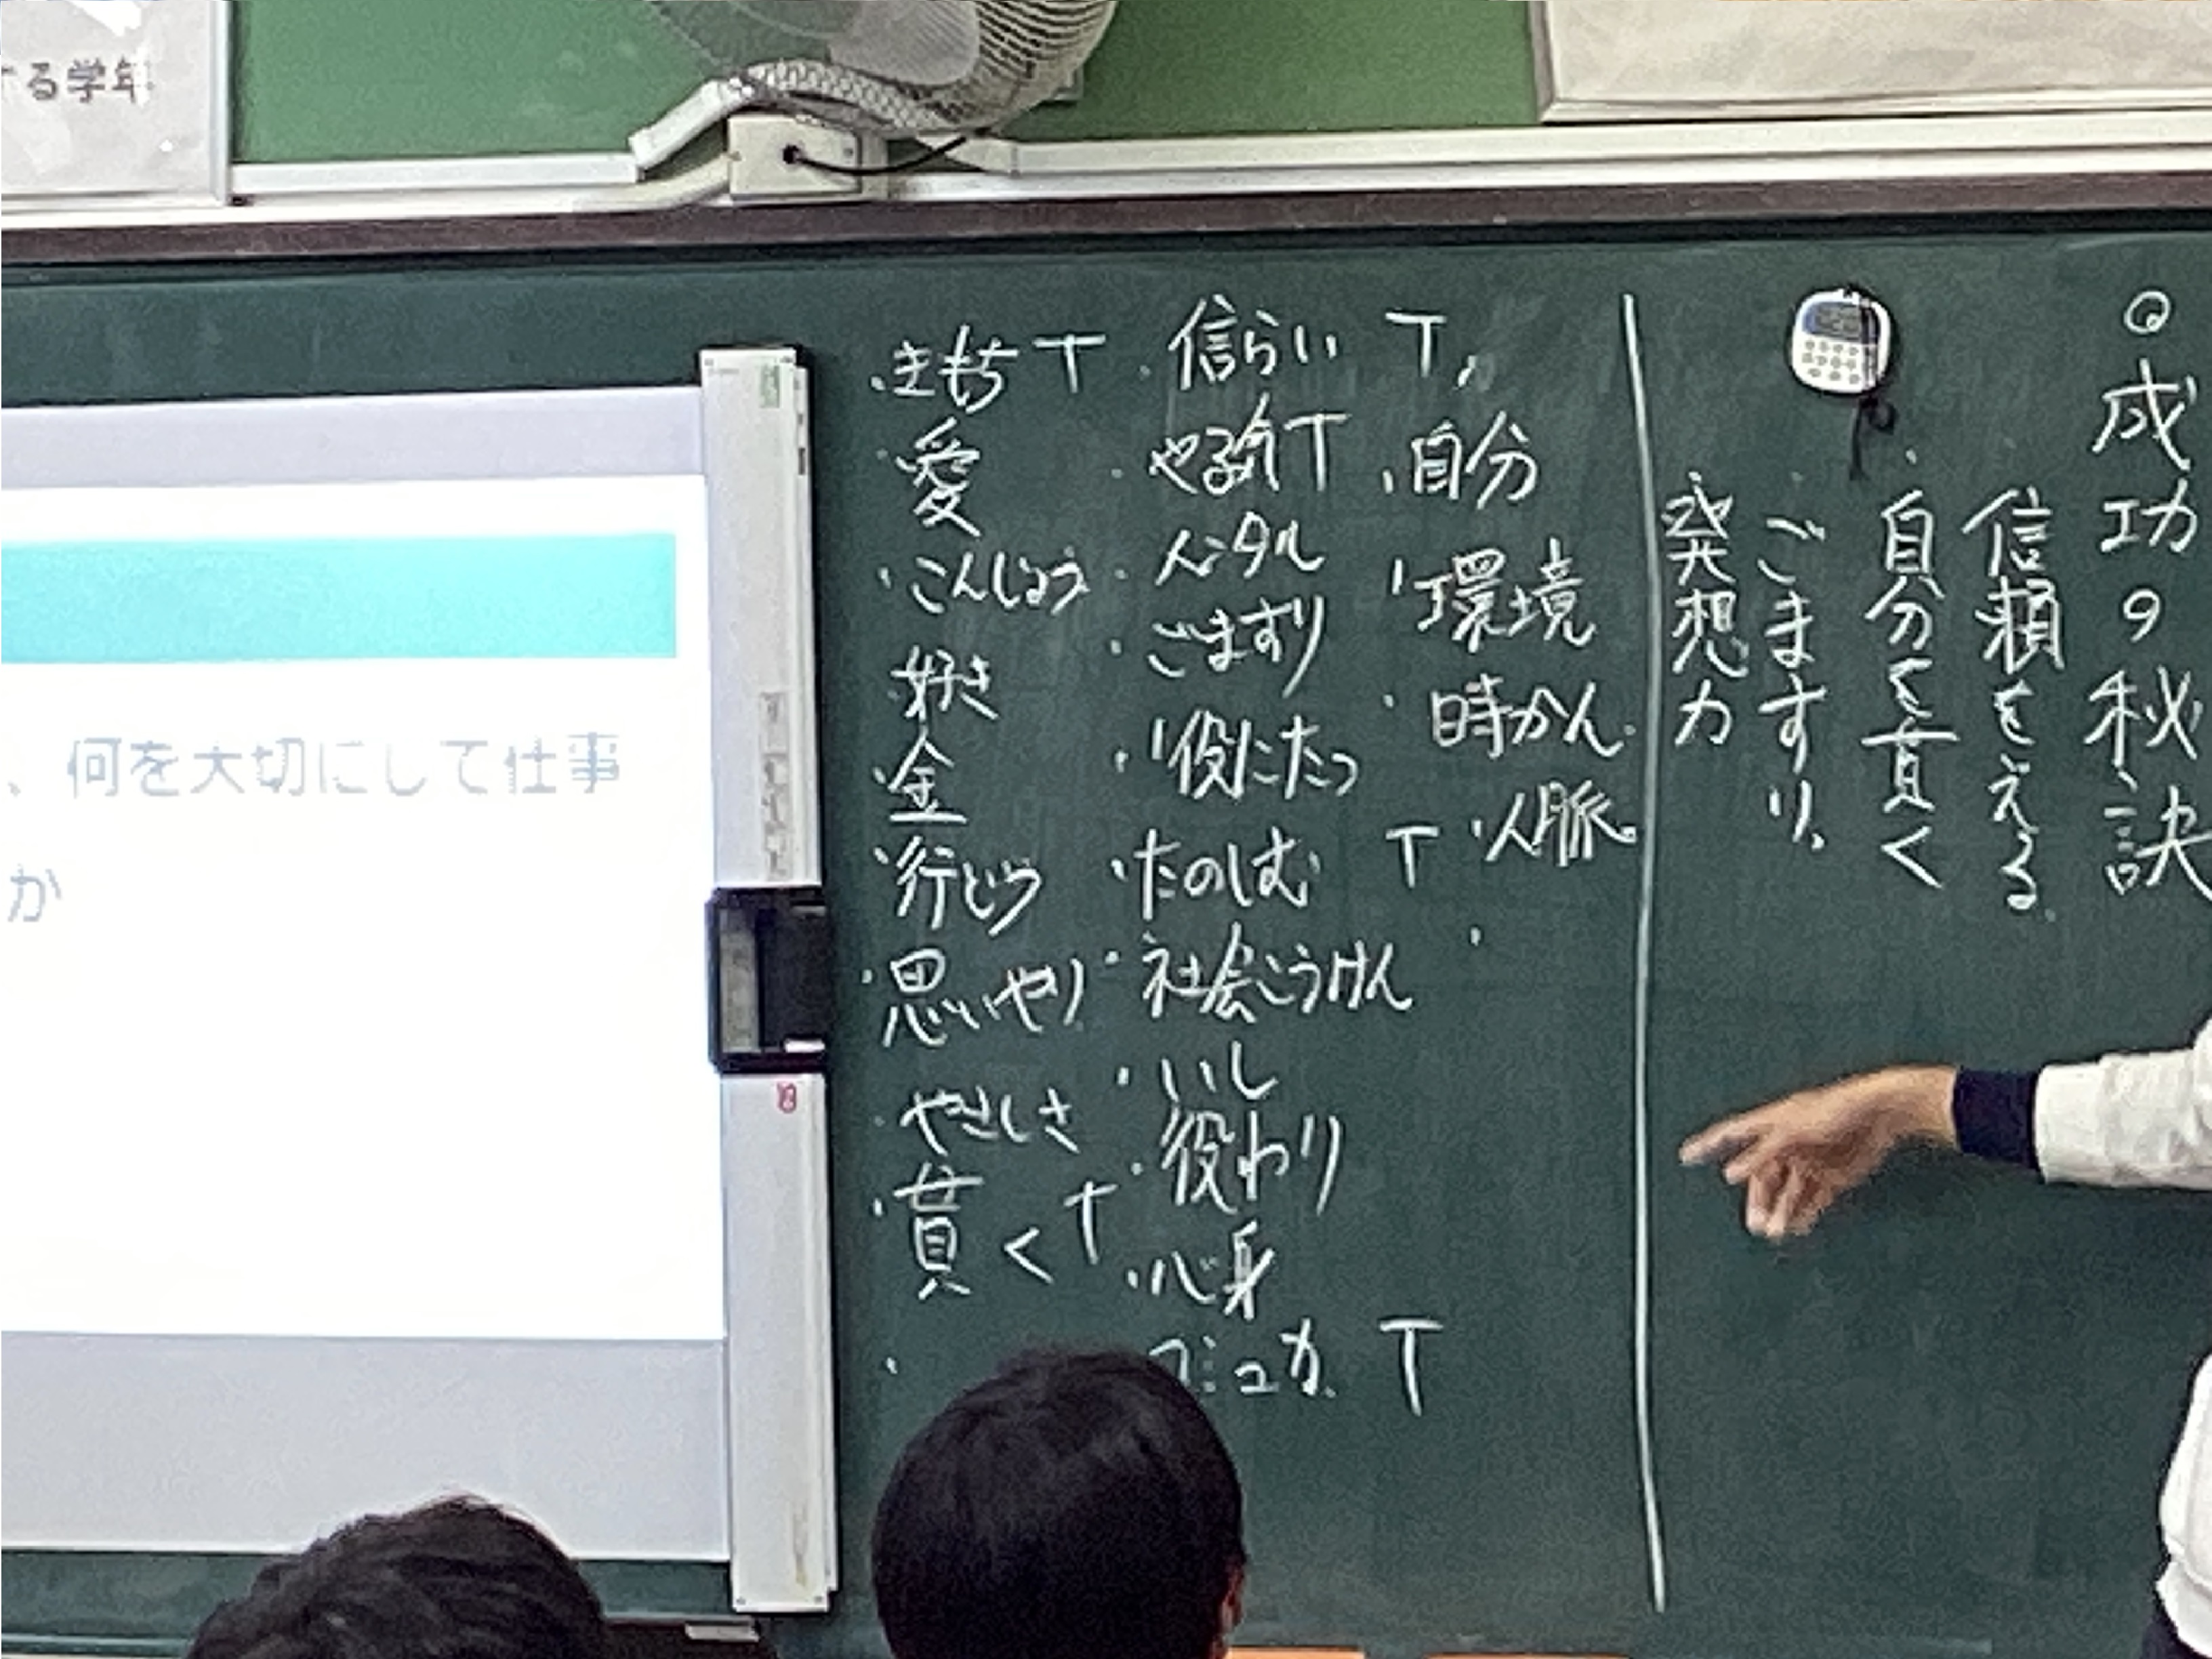 する学年
、何を大切にして仕事
か
◎成功の秘訣
信頼をえる
・自分を貫く
・ごますり
・発想力
T
・自分
・環境
・時かん
・人脈
T
・
・信らい
・やる気T
・メンタル
・ごますり
・役にたつ
・たのしむ
・社会こうけん
・いし
・役わり
・心身
コミュ力 T
・きもちT
・愛
・こんじょう
・好き
・金
・行どう
・思いやり
・やさしさ
・貫くT
・